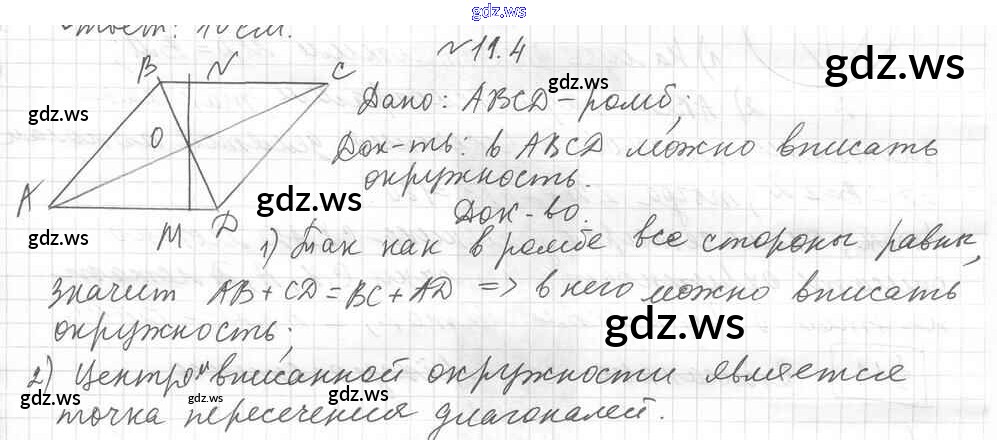 gdz.ws
Ответ: 10 см.
№ 11.4
gdz.ws
B N C
gdz.ws
gdz.ws
Дано: ABCD - ромб;
O
Док-ть: в ABCD можно вписать
окружность.
A
gdz.ws
Док-во.
gdz.ws
M D
1) Так как в ромбе все стороны равны,
значит AB + CD = BC + AD => в него можно вписать
окружность;
gdz.ws
2) Центром вписанной окружности является
gdz.ws gdz.ws gdz.ws
точка пересечения диагоналей.